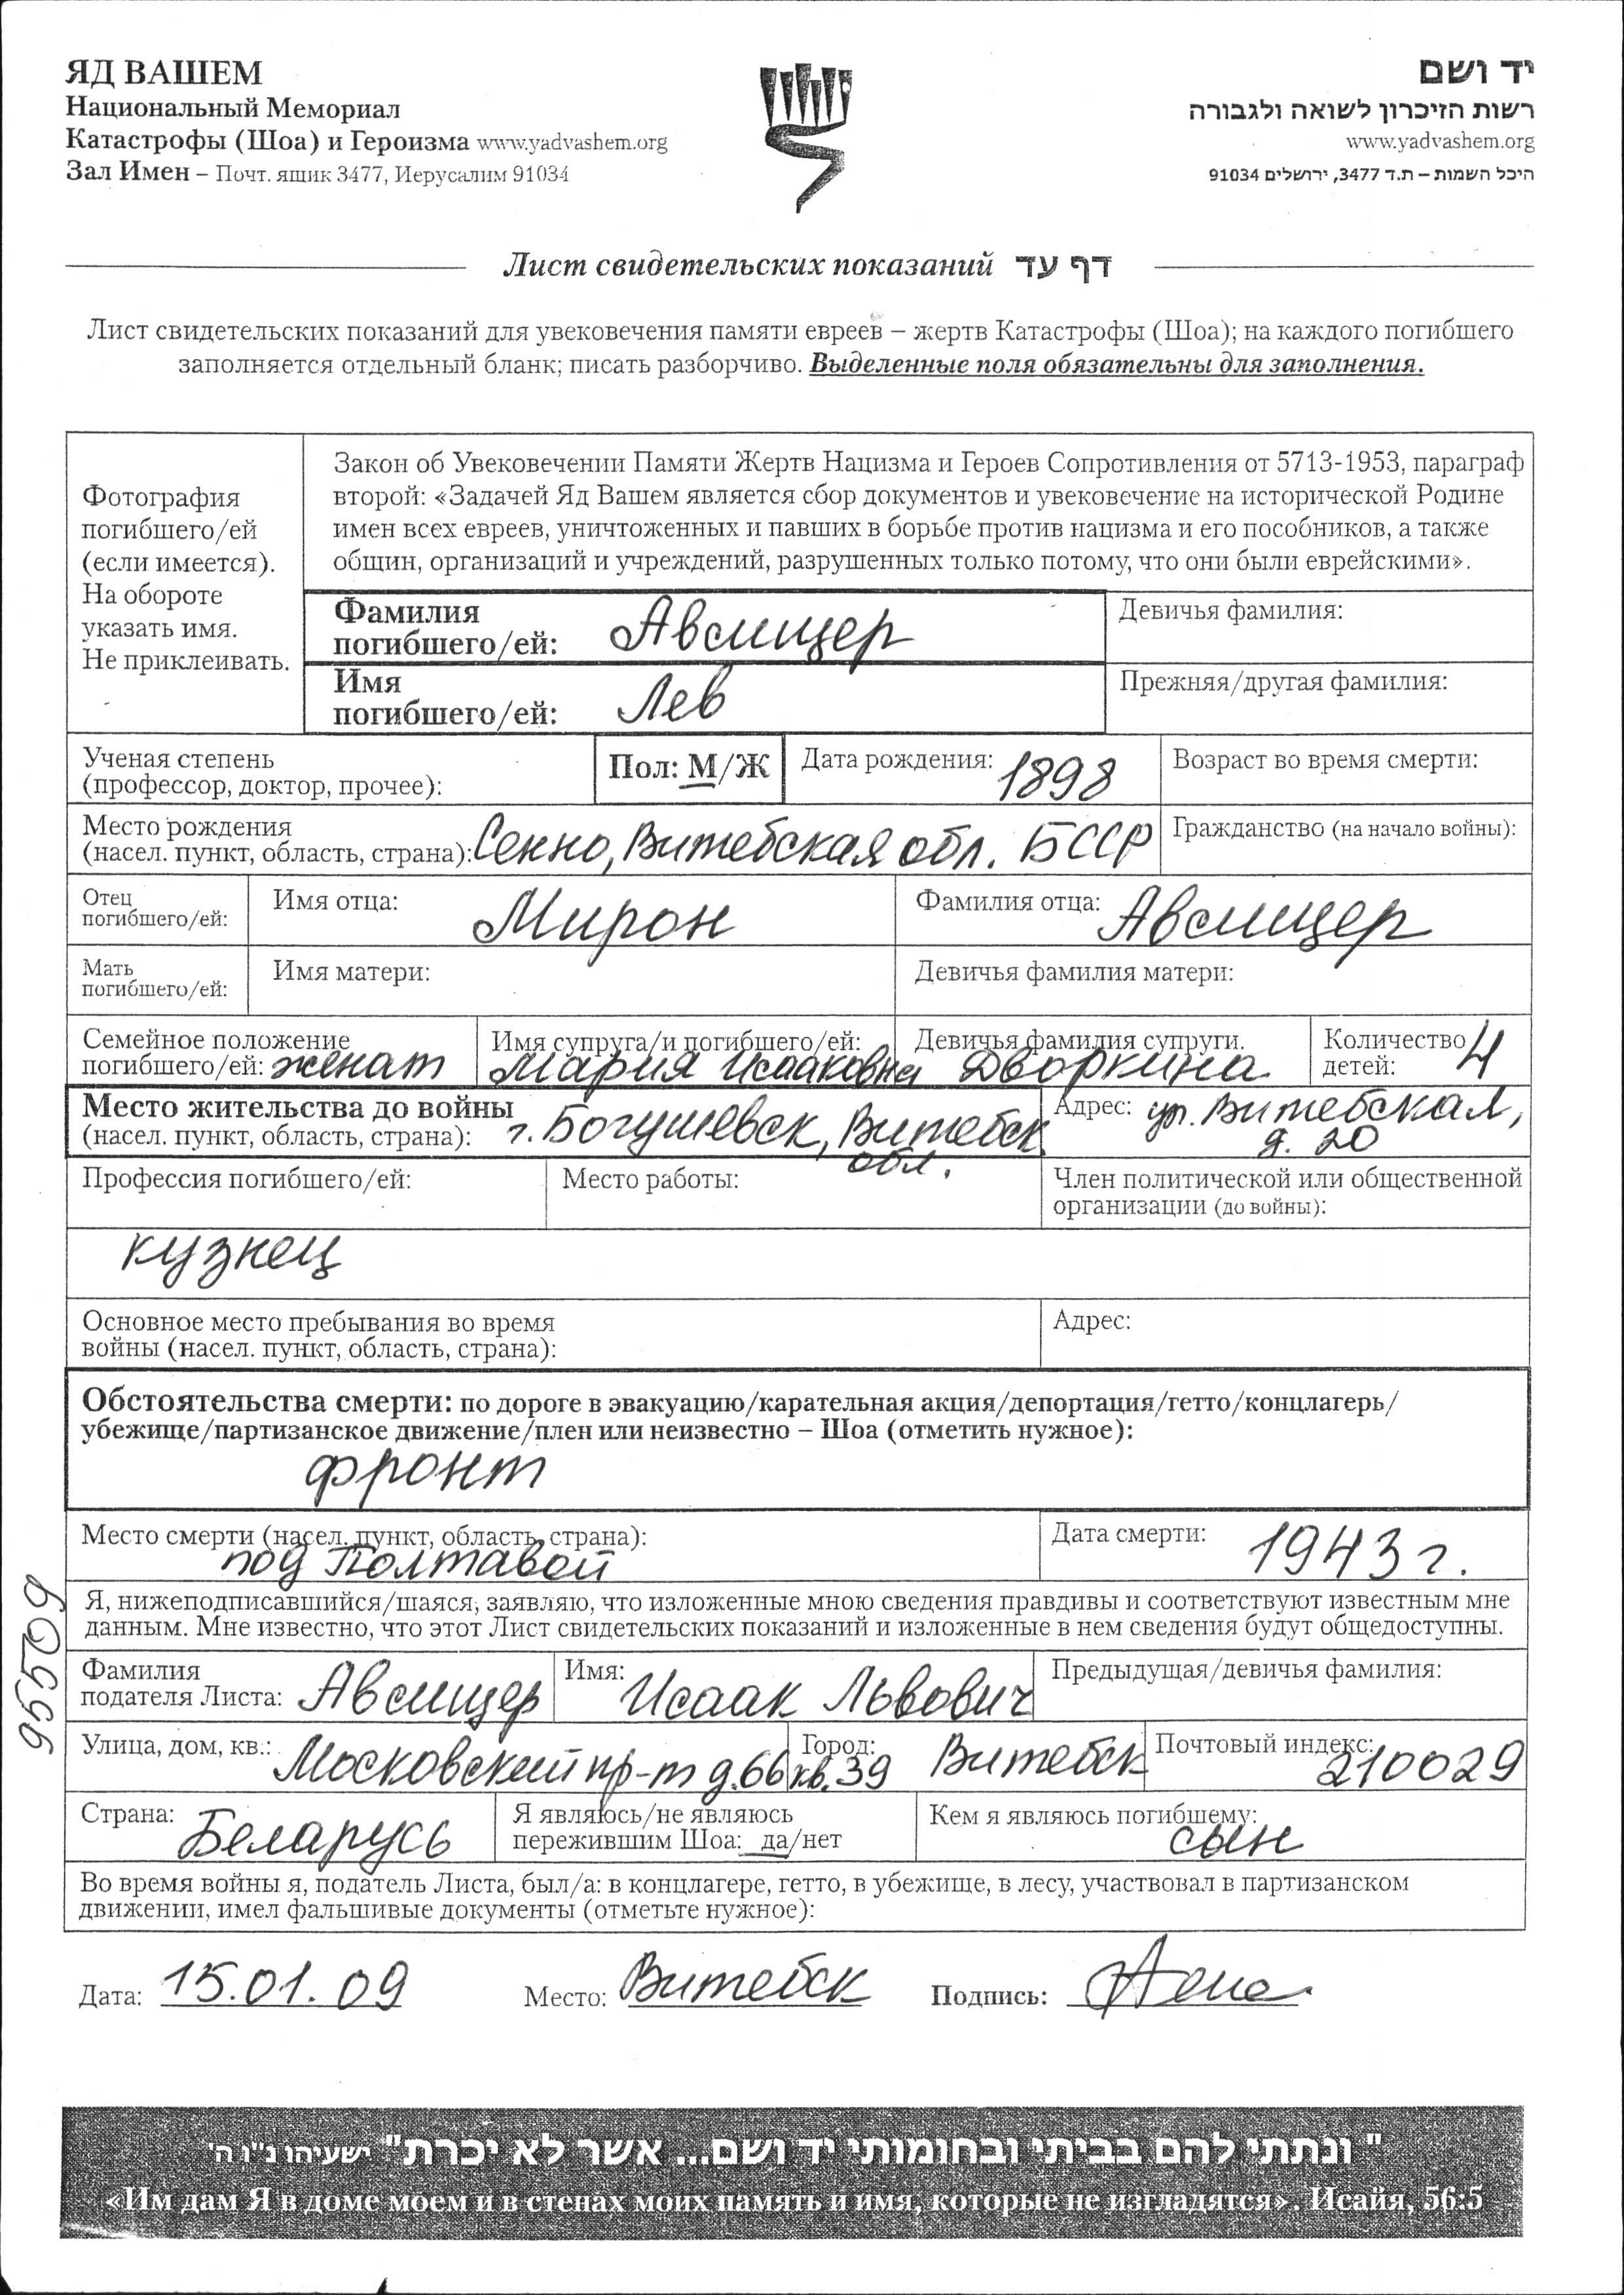 ЯД ВАШЕМ
Национальный Мемориал
Катастрофы (Шоа) и Героизма www.yadvashem.org
Зал Имен – Почт. ящик 3477, Иерусалим 91034
יד ושם
רשות הזיכרון לשואה ולגבורה
www.yadvashem.org
היכל השמות – ת.ד 3477, ירושלים 91034
Лист свидетельских показаний דף עד
Лист свидетельских показаний для увековечения памяти евреев – жертв Катастрофы (Шоа); на каждого погибшего
заполняется отдельный бланк; писать разборчиво. Выделенные поля обязательны для заполнения.
Фотография
погибшего/ей
(если имеется).
На обороте
указать имя.
Не приклеивать.
Закон об Увековечении Памяти Жертв Нацизма и Героев Сопротивления от 5713-1953, параграф
второй: «Задачей Яд Вашем является сбор документов и увековечение на исторической Родине
имен всех евреев, уничтоженных и павших в борьбе против нацизма и его пособников, а также
общин, организаций и учреждений, разрушенных только потому, что они были еврейскими».
Фамилия
погибшего/ей: Авсищер
Девичья фамилия:
Имя
погибшего/ей: Лев
Прежняя/другая фамилия:
Ученая степень
(профессор, доктор, прочее):
Пол: М/Ж
Дата рождения: 1898
Возраст во время смерти:
Место рождения
(насел. пункт, область, страна): Сенно, Витебская обл. БССР
Гражданство (на начало войны):
Отец
погибшего/ей:
Имя отца: Мирон
Фамилия отца: Авсищер
Мать
погибшего/ей:
Имя матери:
Девичья фамилия матери:
Семейное положение
погибшего/ей: женат
Имя супруга/и погибшего/ей:
Мария Исааковна
Девичья фамилия супруги.
Дворкина
Количество
детей: 4
Место жительства до войны
(насел. пункт, область, страна): г. Богушевск, Витебск.
обл.
Адрес: ул. Витебская,
д. 20
Профессия погибшего/ей:
Место работы:
Член политической или общественной
организации (до войны):
кузнец
Основное место пребывания во время
войны (насел. пункт, область, страна):
Адрес:
Обстоятельства смерти: по дороге в эвакуацию/карательная акция/депортация/гетто/концлагерь/
убежище/партизанское движение/плен или неизвестно – Шоа (отметить нужное):
фронт
Место смерти (насел. пункт, область, страна):
под Полтавой
Дата смерти: 1943 г.
Я, нижеподписавшийся/шаяся, заявляю, что изложенные мною сведения правдивы и соответствуют известным мне
данным. Мне известно, что этот Лист свидетельских показаний и изложенные в нем сведения будут общедоступны.
95509
Фамилия
подателя Листа: Авсищер
Имя: Исаак Львович
Предыдущая/девичья фамилия:
Улица, дом, кв.: Московский пр-т д.66 кв.39
Город: Витебск
Почтовый индекс: 210029
Страна: Беларусь
Я являюсь/не являюсь
пережившим Шоа: да/нет
Кем я являюсь погибшему:
сын
Во время войны я, податель Листа, был/а: в концлагере, гетто, в убежище, в лесу, участвовал в партизанском
движении, имел фальшивые документы (отметьте нужное):
Дата: 15.01.09 Место: Витебск Подпись:
"ונתתי להם בביתי ובחומותי יד ושם... אשר לא יכרת" ישעיהו נ"ו ה'
«Им дам Я в доме моем и в стенах моих память и имя, которые не изгладятся». Исайя, 56:5